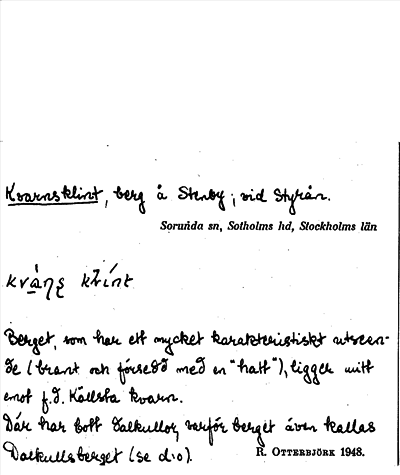 Kvarnsklint, berg å Stenby; vid Styrån.
Sorunda sn, Sotholms hd, Stockholms län
Berget, som har ett mycket karakteristiskt utseen-
de (brant och försedd med en "hatt"), ligger mitt
emot f.d. Källsta kvarn.
Där har bott dalkullor, varför berget även kallas
Dalkullsberget (se d:o).
R. OTTERBJÖRK 1948.